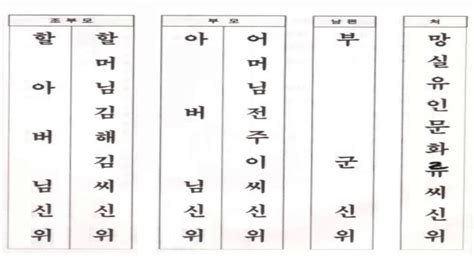 조부모
할아버님신위
할머님김해김씨신위
부모
아버님신위
어머님전주이씨신위
남편
부군신위
처
망실유인문화류씨신위